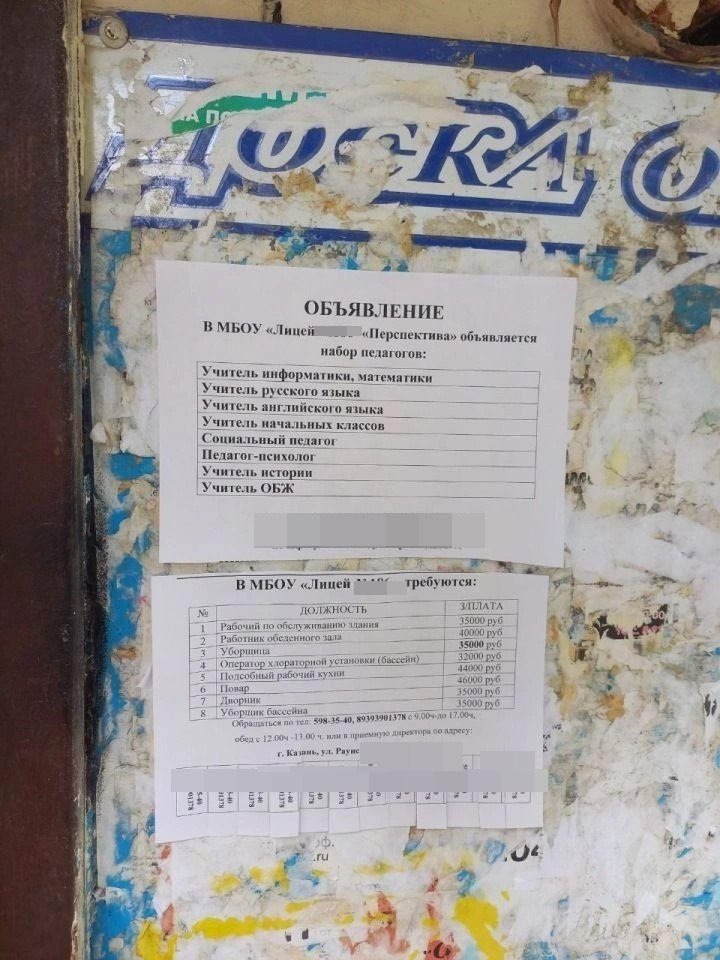 Доска О
ОБЪЯВЛЕНИЕ
В МБОУ «Лицей «Перспектива» объявляется
набор педагогов:
Учитель информатики, математики
Учитель русского языка
Учитель английского языка
Учитель начальных классов
Социальный педагог
Педагог-психолог
Учитель истории
Учитель ОБЖ
В МБОУ «Лицей требуются:
№ ДОЛЖНОСТЬ З/ПЛАТА
1 Рабочий по обслуживанию здания 35000 руб
2 Работник обеденного зала 40000 руб
3 Уборщица 35000 руб
4 Оператор хлораторной установки (бассейн) 32000 руб
5 Подсобный рабочий кухни 44000 руб
6 Повар 46000 руб
7 Дворник 35000 руб
8 Уборщик бассейна 35000 руб
Обращаться по тел: 598-35-40, 89393901378 с 9.00ч-до 17.00ч,
обед с 12.00ч -13.00 ч. или в приемную директора по адресу:
г. Казань, ул. Рауис
.ru